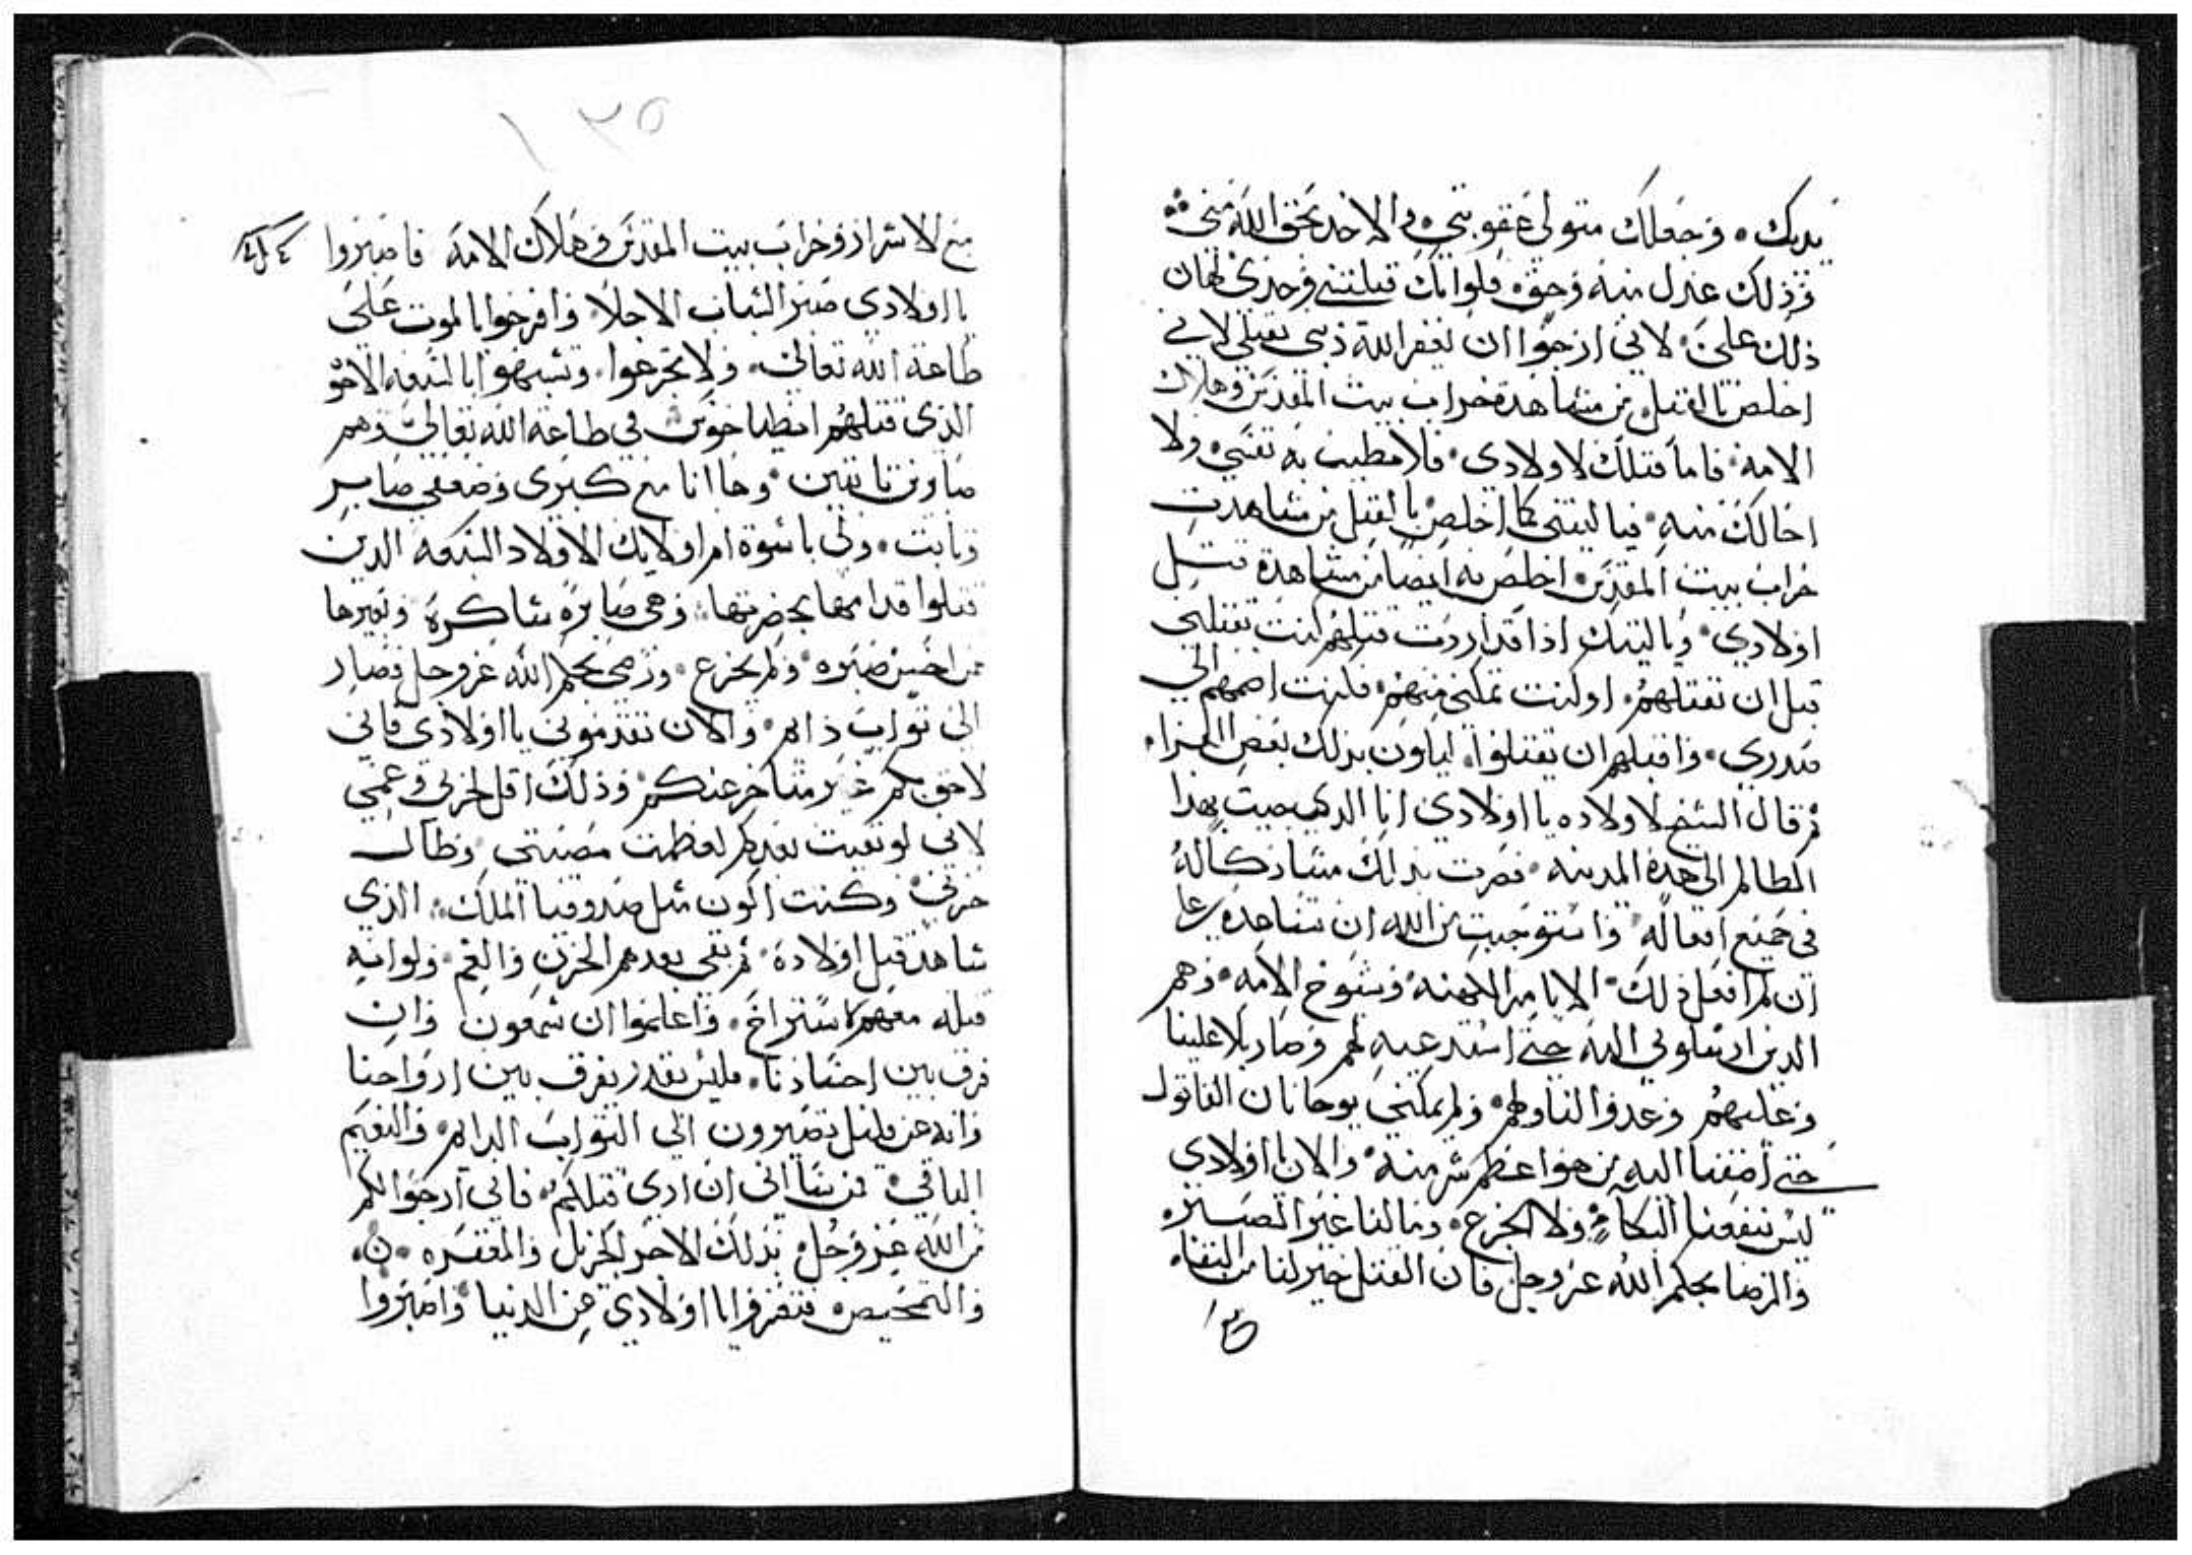 يديك، وجعلك متولي عقوبتي، والاخد بحق الله مني
وذلك عدل منه وحق، فلو انك قتلتني وحدي لهان
ذلك علي، لاني ارجوا ان يغفر الله ذنبي بقتلي لاني
اخلص بالقتل من مشاهدة خراب بيت المقدس وهلاك
الامه، فاما قتلك لاولادي، فلا تطيب به نفسي، ولا
اخالك منه، فيا ليتني كما اخلص بالقتل من مشاهدت
خراب بيت المقدس، اخلص به ايضا من مشاهدة قتل
اولادي، ويا ليتك اذا قد اردت قتلهم كنت تقتلني
قبل ان تقتلهم، او كنت تمكني منهم، فكنت اضمهم الي
صدري، واقبلهم ان يقتلوا، ليكون بذلك بعض العزاء
ثم قال الشيخ لاولاده يا اولادي انا الدي جيت بهدا
الظالم الى هده المدينه، فصرت بدلك مشارك له
في جميع افعاله، واستوجبت من الله ان تشاهده عل
ان لم افعل ذلك، الا بامر الكهنه، وشيوخ الامه، وهم
الدين ارسلوني اليه حتى استدعيه لهم وصار بلا علينا
وعليهم وعدوا لنا ولهم، ولم يمكني يوحانان القاتول
حتى اضفنا اليه من هوا عظم شر منه، والان يا اولادي
ليس ينفعنا البكاء، ولا الجزع، وما لنا غير الصبر
والرضا بحكم الله عز وجل فان القتل خير لنا من البقاء
مع
مع الاشرار وخراب بيت المقدس وهلاك الامه فاصبروا
يا اولادي صبر الشباب الاجلا، وافرحوا بالموت علي
طاعة الله تعالى، ولا تجزعوا، وتشبهوا بالسبعه الاخوه
الذي قتلهم انطياخوس في طاعة الله تعالى وهم
صابرين تابتين، وها انا مع كبري وضعفي صابر
وتابت، ولي باسوة ام اولايك الاولاد السبعه الدين
قتلوا قدامها بحضرتها، وهي صابره شاكرة وغيرها
ممن احسن صبره، ولم يجزع، ورضي بحكم الله عز وجل فصار
الى تواب دايم، والان تتقدموني يا اولادي فاني
لاحق بكم غير متاخر عنكم، وذلك اقل لحزني وغمي
لاني لو بقيت بعدكم لعظمت مصيبتي وطال
حزني، وكنت اكون مثل صدوقيا الملك، الذي
شاهد قتل اولادة، ثم بقي بعدهم الحزن والغم، ولو انه
قتله معهم كاستراح، واعلموا ان شمعون وان
فرق بين اجسادنا، فليس يقدر يفرق بين ارواحنا
وانه عن قليل تصيرون الي التواب الدايم، والنعيم
الباقي، فمن شا الى ان ارى قتلكم، فاني ارجوا لكم
من الله عز وجل بذلك الاجر الجزيل والمغفره
والتمحيص، فتعزوا يا اولادي عن الدنيا، واصبروا
١٢٥